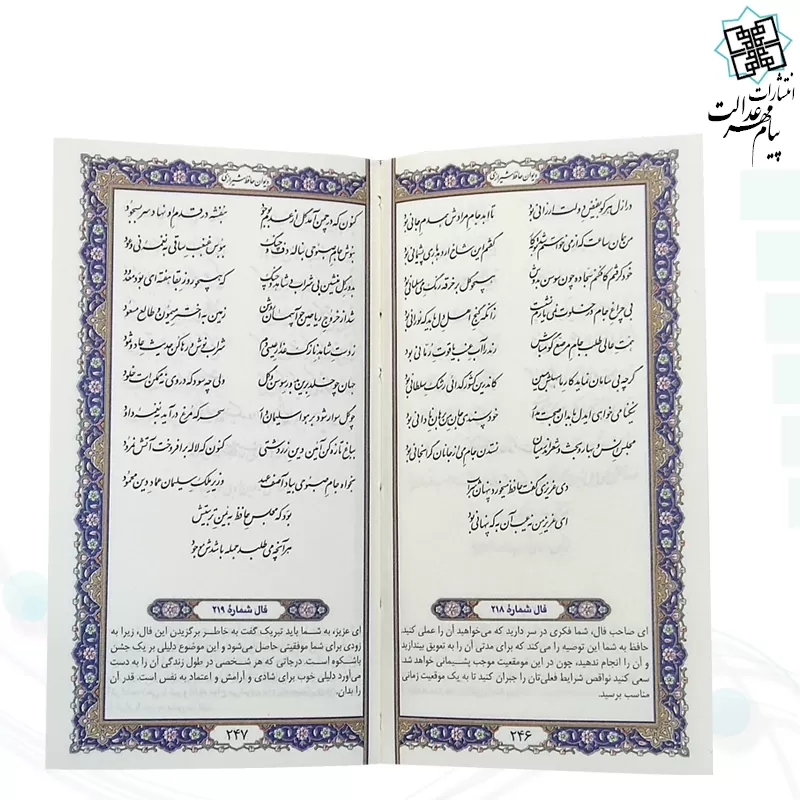 انتشارات
پیام مهر عدالت
دیوان حافظ شیرازی
در ازل هر کو به فیض دولت ارزانی بود تا ابد جام مرادش همدم جانی بود
من همان ساعت که از می خواستم شد توبه کار گفتم این شاخ ار دهد باری پشیمانی بود
خود گرفتم کافکنم سجاده چون سوسن به دوش همچو گل بر خرقه رنگ می مسلمانی بود
بی چراغ جام در خلوت نمی یارم نشست زانکه کنج اهل دل باید که نورانی بود
همت عالی طلب جام مرصع گو مباش رند را آب عنب یاقوت رمانی بود
گرچه بی سامان نماید کار ما سهلش مبین کاندرین کشور گدائی رشک سلطانی بود
نیکنامی خواهی ای دل با بدان صحبت مدار خود پسندی جان من برهان نادانی بود
مجلس انس و بهار و بحث و شعر اندر میان نستدن جام می از جانان گرانجانی بود
دی عزیزی گفت حافظ میخورد پنهان شراب
ای عزیز من نه عیب آن به که پنهانی بود
فال شمارهٔ ۲۱۸
ای صاحب فال، شما فکری در سر دارید که می‌خواهید آن را عملی کنید.
حافظ به شما این توصیه را می‌کند که برای مدتی آن را به تعویق بیندازید
و آن را انجام ندهید، چون در این موقعیت موجب پشیمانی خواهد شد.
سعی کنید نواقص شرایط فعلی‌تان را جبران کنید تا به یک موقعیت زمانی
مناسب برسید.
۲۴۶
دیوان حافظ شیرازی
کنون که در چمن آمد گل از عدم به وجود بنفشه در قدم او نهاد سر به سجود
بنوش جام صبوحی به ناله دف و چنگ ببوس غبغب ساقی به نغمه نی و عود
به دور گل منشین بی شراب و شاهد و چنگ که همچو روز بقا هفته ای بود معدود
شد از خروج ریاحین چو آسمان روشن زمین به اختر میمون و طالع مسعود
ز دست شاهد نازک عذار عیسی دم شراب نوش و رها کن حدیث عاد و ثمود
جهان چو خلد برین شد به دور سوسن و گل ولی چه سود که در وی نه ممکن است خلود
چو گل سوار شود بر هوا سلیمان وار سحر که مرغ در آید به نغمه داود
بباغ تازه کن آئین دین زردشتی کنون که لاله برافروخت آتش نمرود
بخواه جام صبوحی بیاد آصف عهد وزیر ملک سلیمان عماد دین محمود
بود که مجلس حافظ به یمن تربیتش
هر آنچه می طلبد جمله باشدش موجود
فال شمارهٔ ۲۱۹
ای عزیز، به شما باید تبریک گفت به خاطر برگزیدن این فال، زیرا به
زودی برای شما موفقیتی حاصل می‌شود و این موضوع دلیلی بر یک جشن
باشکوه است. درجاتی که هر شخصی در طول زندگی آن را به دست
می‌آورد دلیلی خوب برای شادی و آرامش و اعتماد به نفس است. قدر آن
را بدان.
۲۴۷